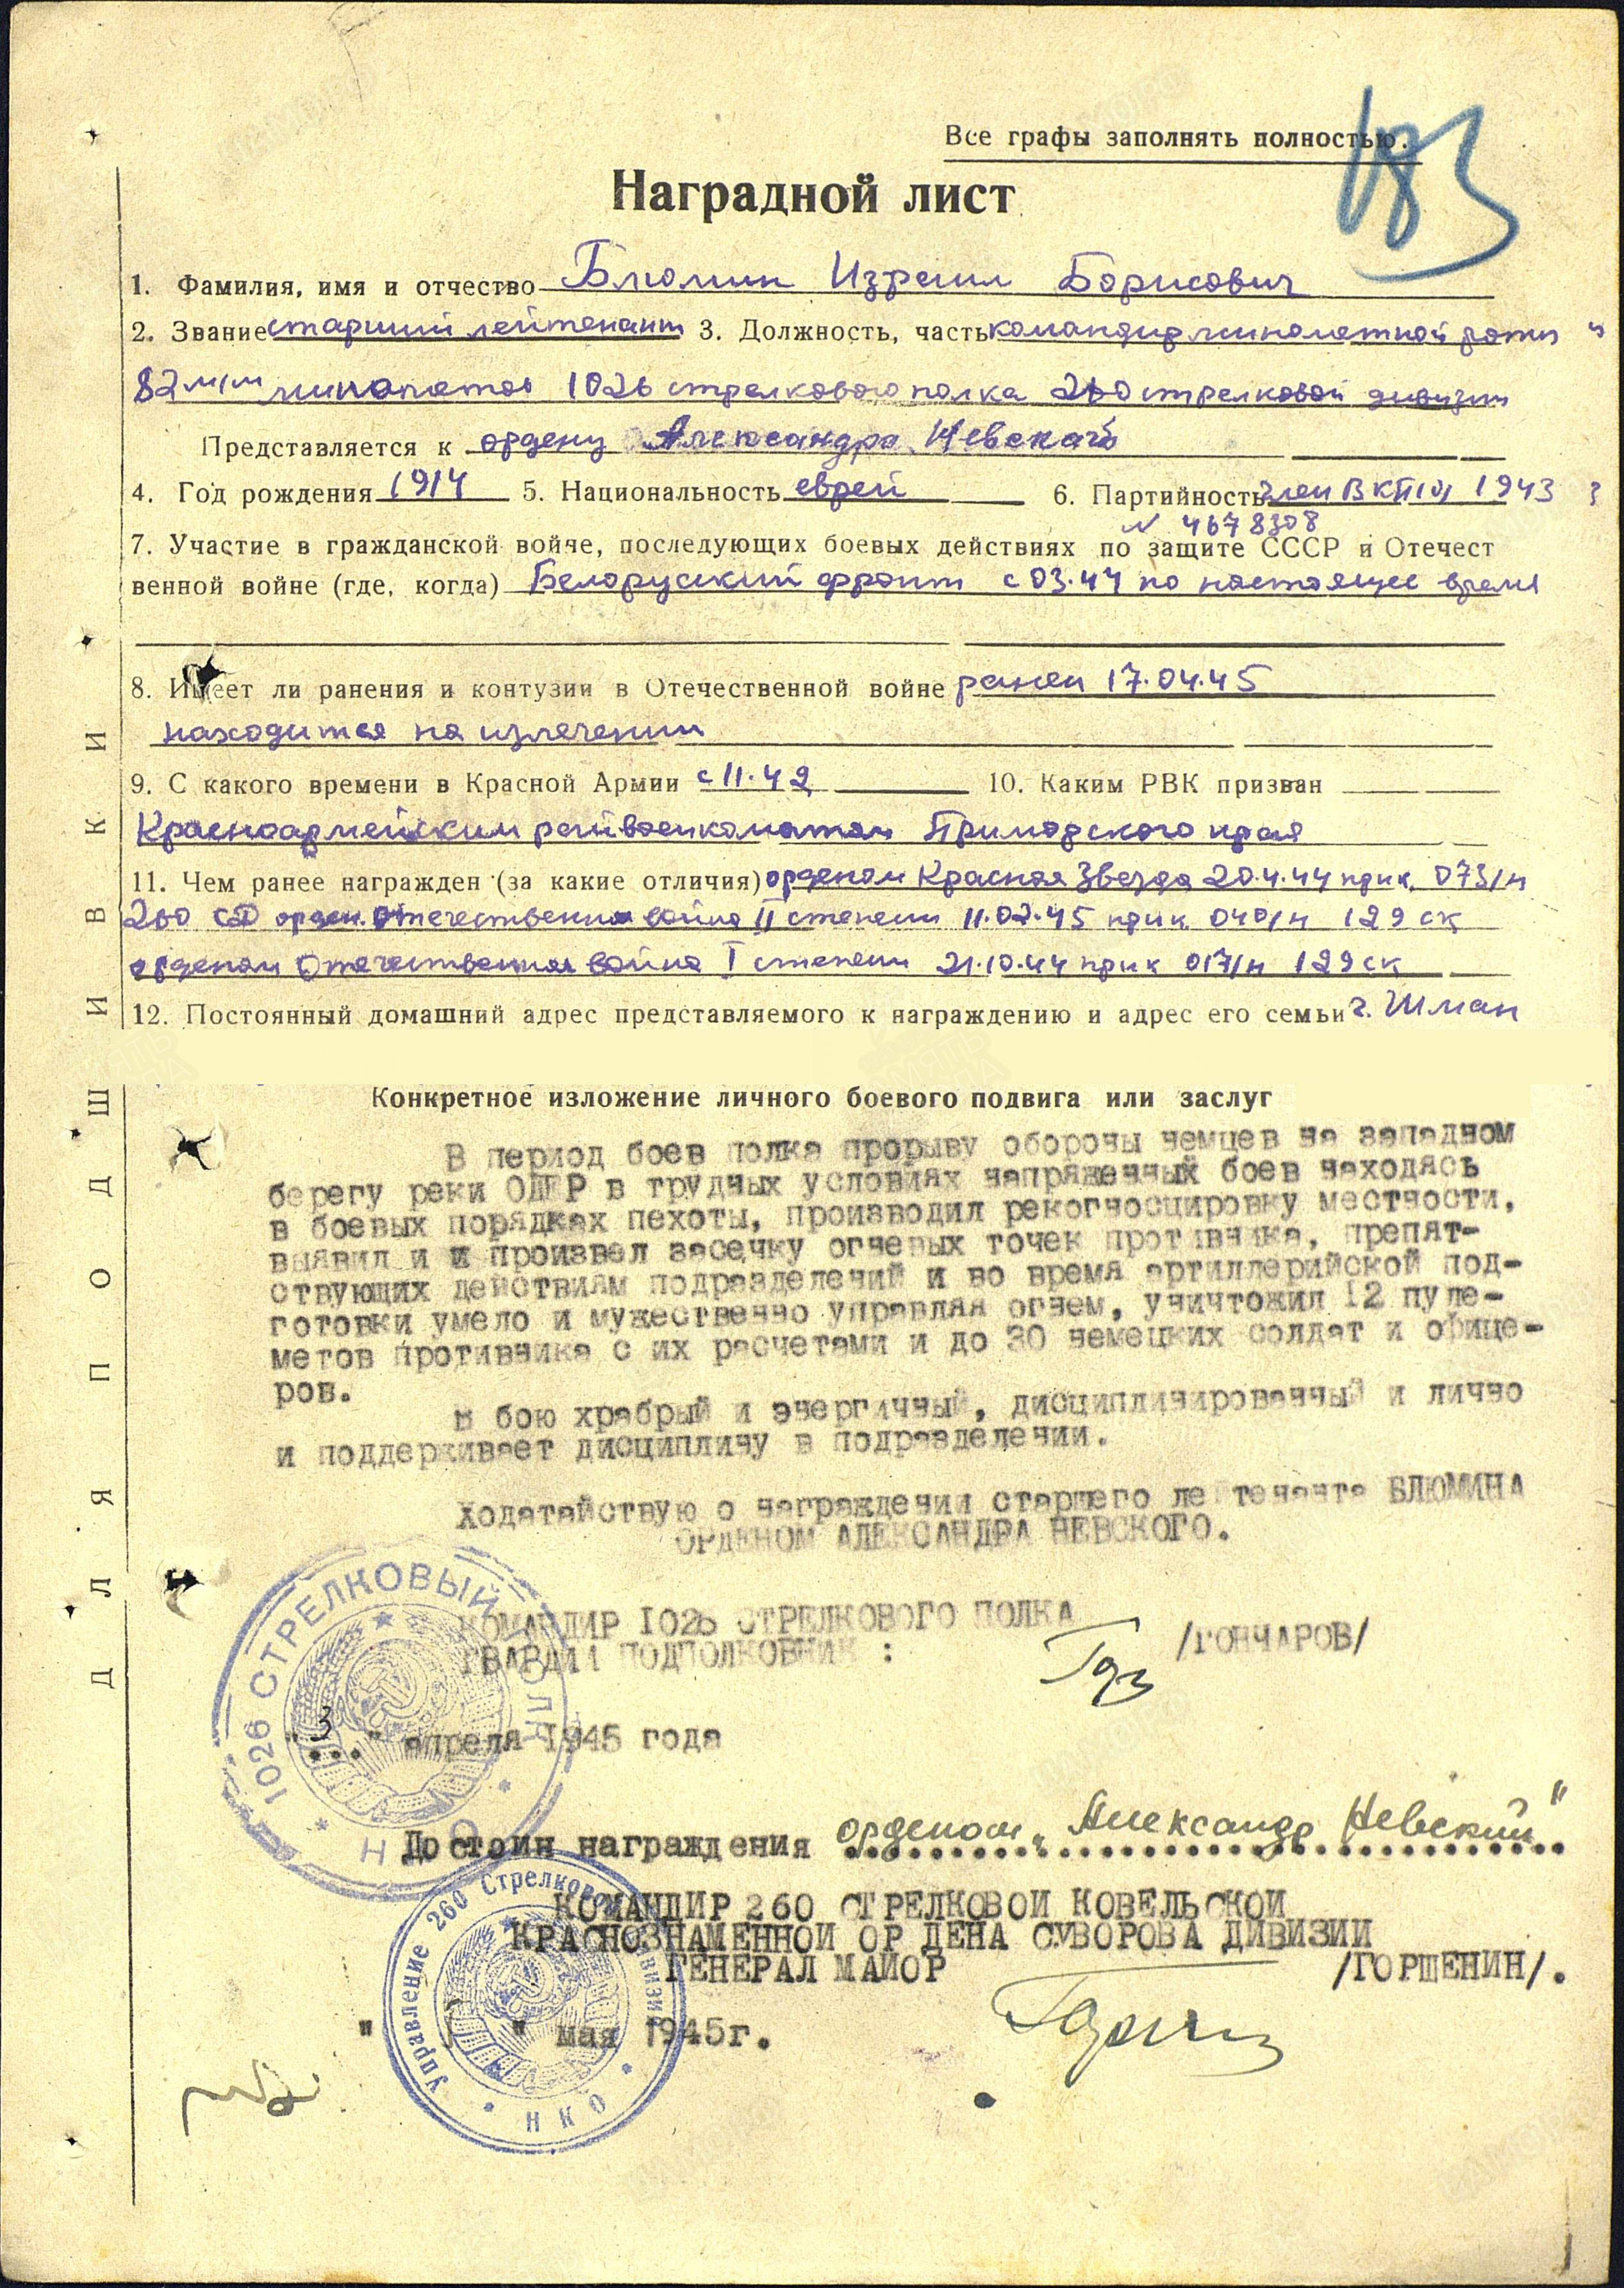 183
Все графы заполнять полностью.
Наградной лист
1. Фамилия, имя и отчество Блюмин Израил Борисович
2. Звание старший лейтенант 3. Должность, часть командир минометной роты
82 м/м минометов 1026 стрелкового полка 260 стрелковой дивизии
Представляется к ордену Александра Невского
4. Год рождения 1914 5. Национальность еврей 6. Партийность член ВКП(б) 1943
N 4678308
7. Участие в гражданской войне, последующих боевых действиях по защите СССР и Отечест
венной войне (где, когда) Белорусский фронт с 03.44 по настоящее время
8. Имеет ли ранения и контузии в Отечественной войне ранен 17.04.45
находится на излечении
9. С какого времени в Красной Армии с 11.42 10. Каким РВК призван
Красноармейским райвоенкоматом Приморского края
11. Чем ранее награжден (за какие отличия) орденом Красная Звезда 20.4.44 прик. 073/н
260 сд орден. Отечественная война II степени 11.02.45 прик 040/н 129 ск
орденом Отечественная война I степени 21.10.44 прик 017/н 129 ск
12. Постоянный домашний адрес представляемого к награждению и адрес его семьи г. Шман
Конкретное изложение личного боевого подвига или заслуг
В период боев полка прорыву обороны немцев на западном
берегу реки ОДЕР в трудных условиях напряженных боев находясь
в боевых порядках пехоты, производил рекогносцировку местности,
выявил и и произвел засечку огневых точек противника, препят-
ствующих действиям подразделений и во время артиллерийской под-
готовки умело и мужественно управляя огнем, уничтожил 12 пуле-
метов противника с их расчетами и до 30 немецких солдат и офице-
ров.
В бою храбрый и энергичный, дисциплинированный и лично
и поддерживает дисциплину в подразделении.
Ходатайствую о награждении старшего лейтенанта БЛЮМИНА
ОРДЕНОМ АЛЕКСАНДРА НЕВСКОГО.
КОМАНДИР 1026 СТРЕЛКОВОГО ПОЛКА
ГВАРДИИ ПОДПОЛКОВНИК : /ГОНЧАРОВ/
"3" апреля 1945 года
1026 СТРЕЛКОВЫЙ ПОЛК
Н К О
Достоин награждения орденом „Александр Невский"
КОМАНДИР 260 СТРЕЛКОВОЙ КОВЕЛЬСКОЙ
КРАСНОЗНАМЕННОЙ ОРДЕНА СУВОРОВА ДИВИЗИИ
ГЕНЕРАЛ МАЙОР /ГОРШЕНИН/.
" " мая 1945г.
Управление 260 Стрелковой дивизии
Н К О
ДЛЯ ПОДШИВКИ